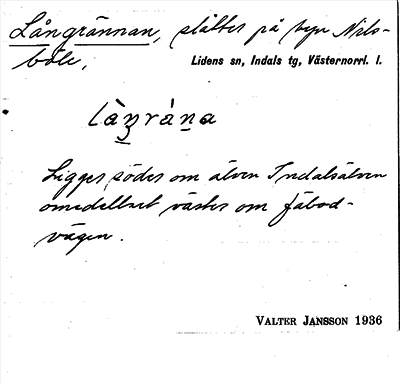 Långrännan, slåtter på byn Nils-
böle, Lidens sn, Indals tg, Västernorrl. l.
làŋrána
Ligger söder om älven Indalsälven
omedelbart väster om fäbod-
vägen.
VALTER JANSSON 1936